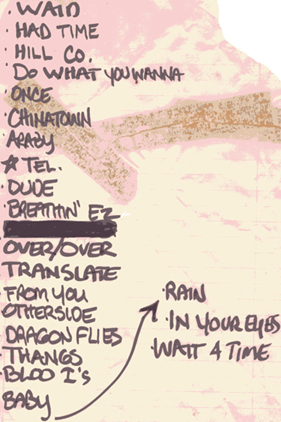 · WAID
· HAD TIME
· HILL CO.
· DO WHAT YOU WANNA
· ONCE
· CHINATOWN
ARABY
★ TEL.
· DUDE
· BREATHIN' EZ
OVER/OVER
TRANSLATE
· FROM YOU
OTHERSIDE
· DRAGON FLIES
· THANGS
BLOO I's
BABY
· RAIN
· IN YOUR EYES
· WAIT 4 TIME